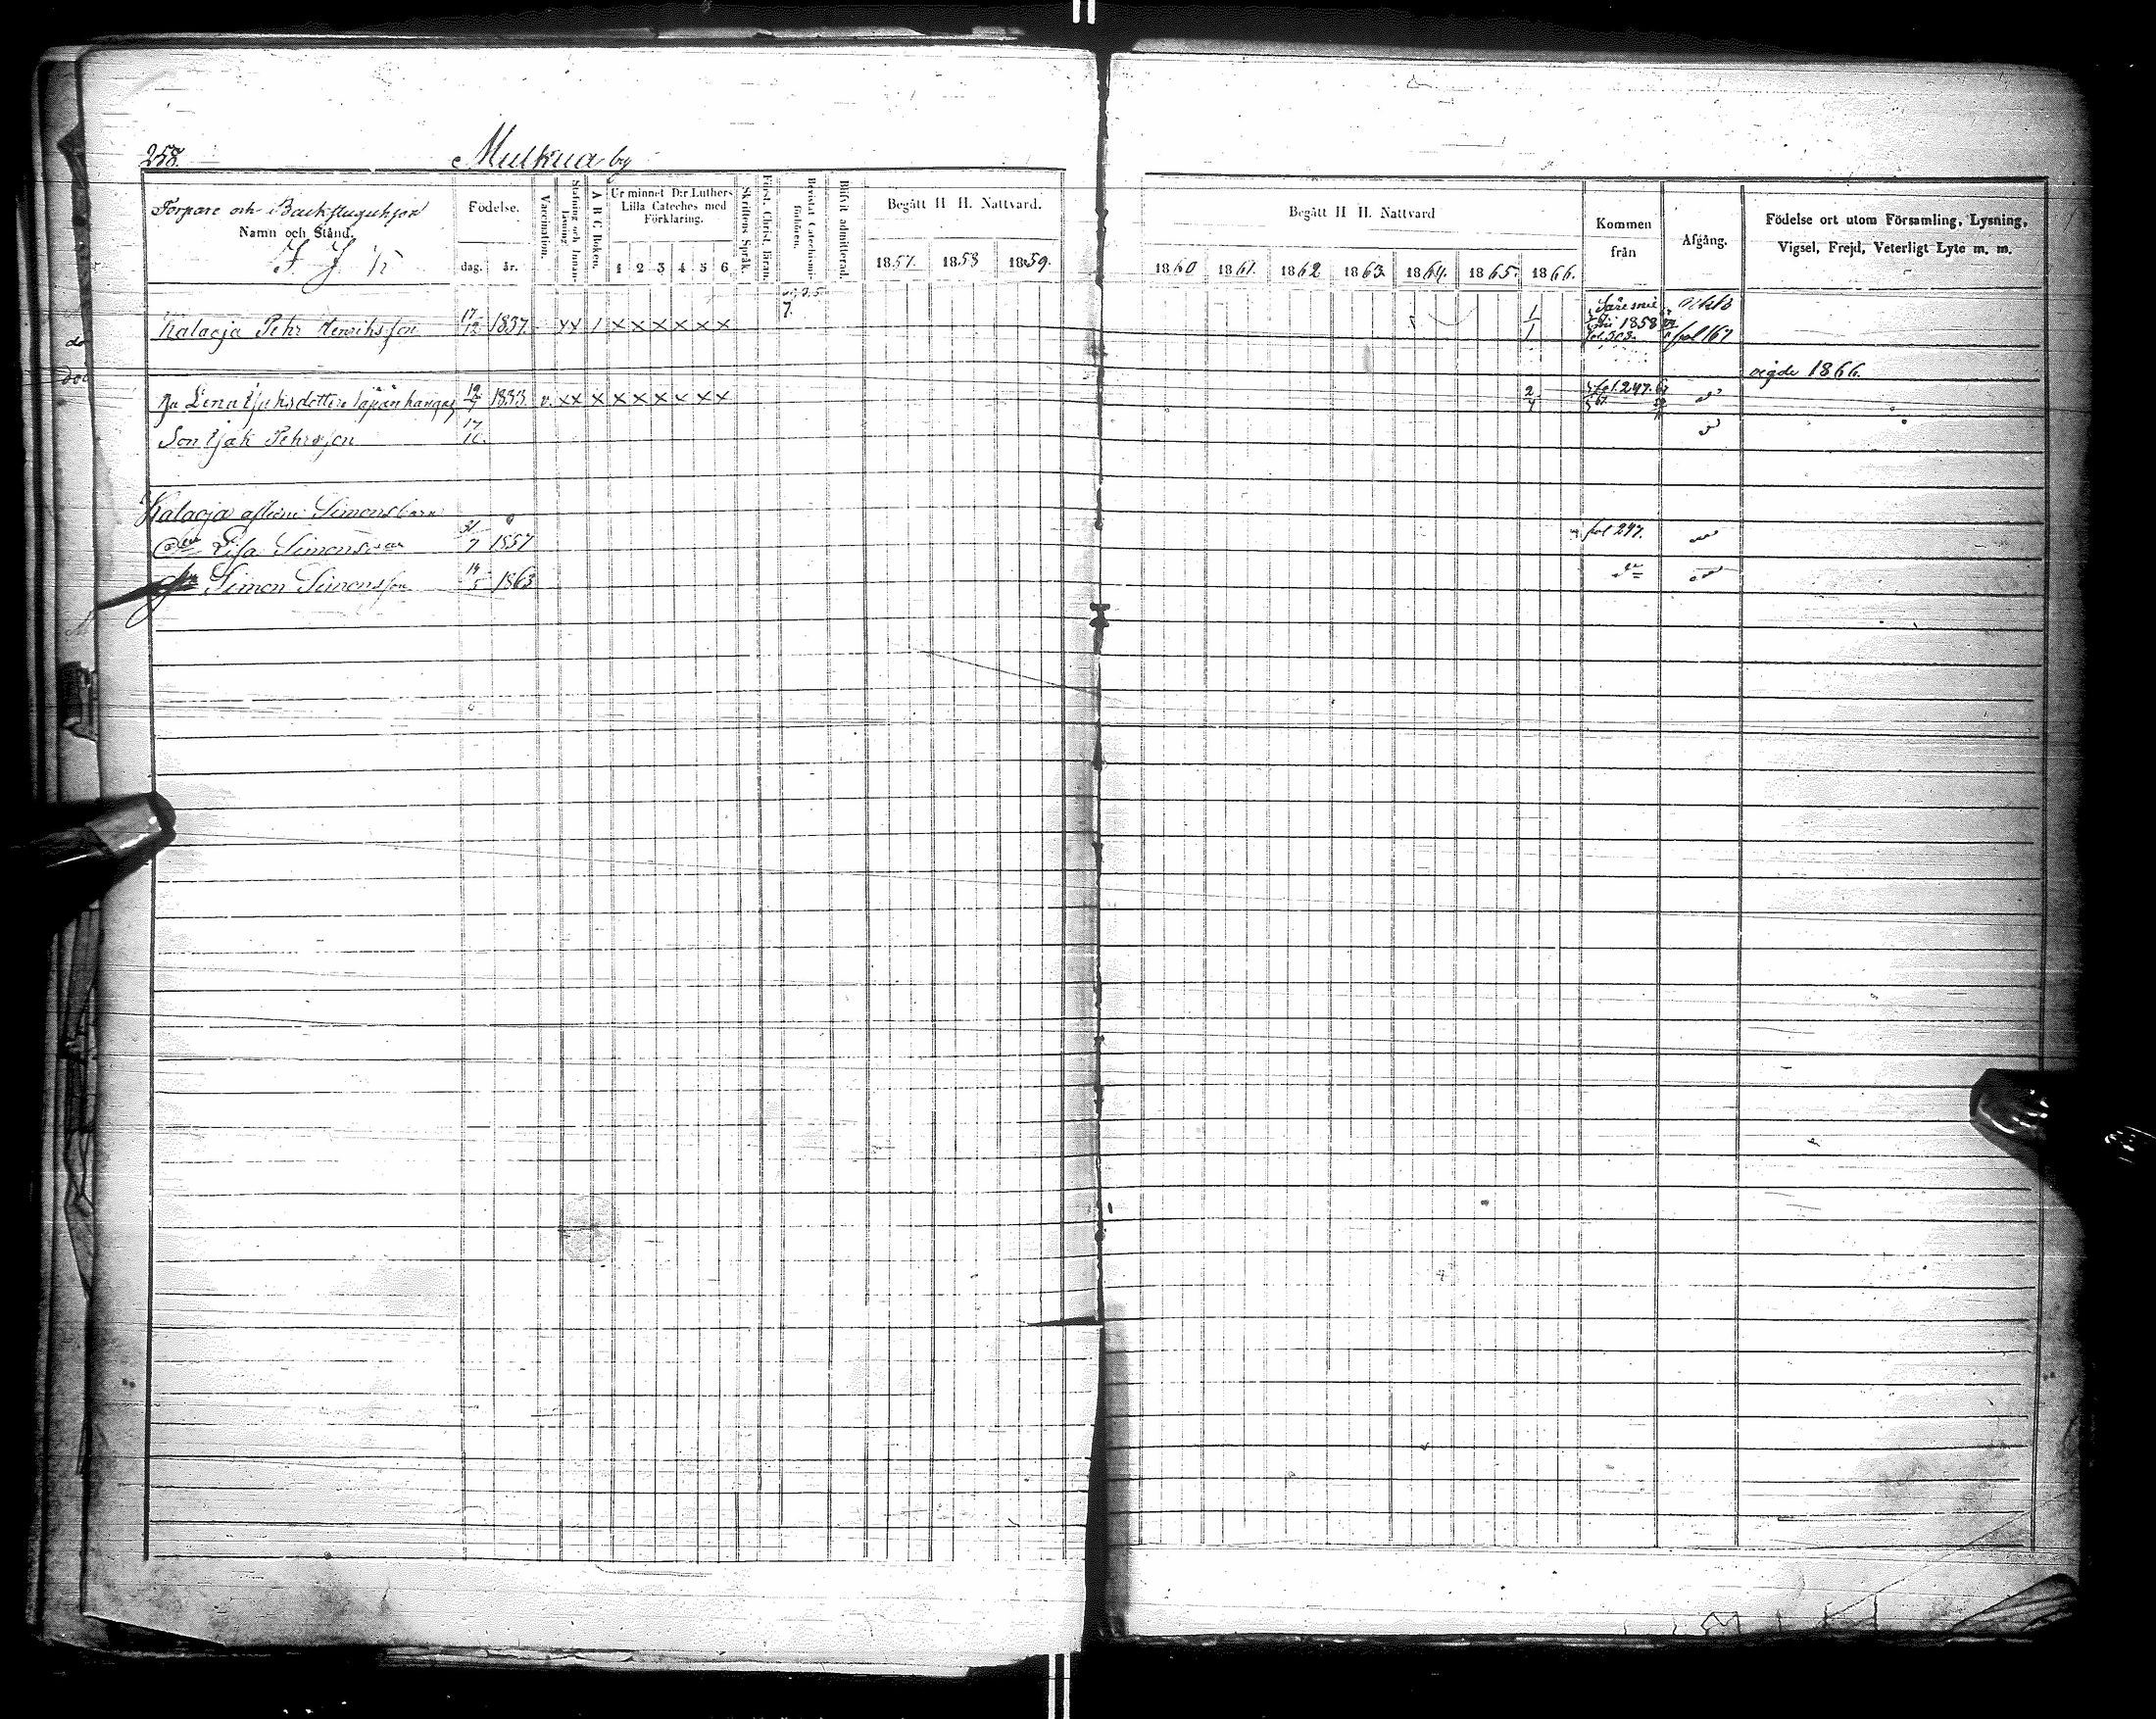 258.
Mulkua by
Torpare och Backstuguhjon
Namn och Stånd.
Födelse.
dag. år.
Vaccination.
Stafning och Innanläsning.
A B C Boken.
Ur minnet D:r Luthers Lilla Cateches med Förklaring.
1 2 3 4 5 6
Skriftens Språk.
Först. Christ. läran.
Bevistat Catechismi förhören.
Blifvit admitterad.
Begått H H. Nattvard.
1857. 1858 1859.
Begått H H. Nattvard
1860 1861. 1862 1863. 1864. 1865. 1866.
Kommen från
Afgång.
Födelse ort utom Församling, Lysning, Vigsel, Frejd, Veterligt Lyte m. m.
Kalaoja Pehr Henriksson 17/12 1837. xx / x x x x x x 7. 1/1 1858 fol. 303. fol 167
vigde 1866.
Lena 19/7 1833. v. xx x x x x x x x 2/4 fol. 247.
Son Isak Pehrsson 17/10.
Kalaoja aflidne Simons barn
Lisa 31/7 1857 fol 247.
Simon Simonsson 14/5 1863